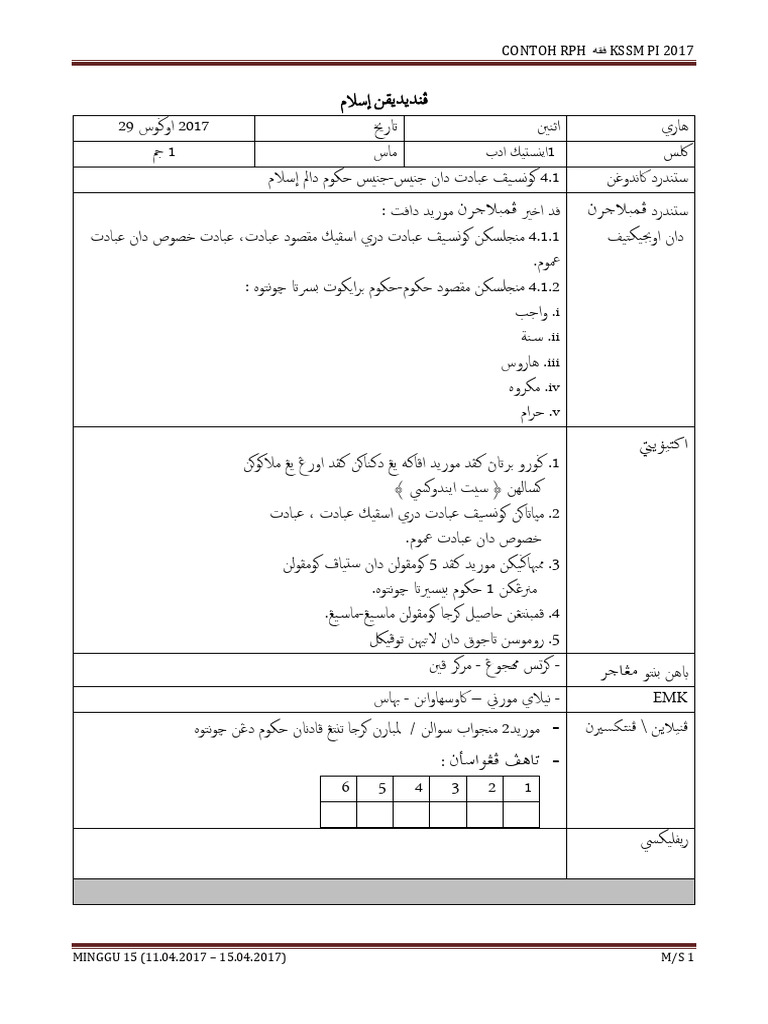 CONTOH RPH فقه KSSM PI 2017
ڤنديديقن إسلام
هاري اثنين تاريخ 29 اوݢوس 2017
كلس 1اينستيك ادب ماس 1 جم
ستندرد كاندوڠن 4.1 كونسيف عبادت دان جنيس-جنيس حكوم دالم إسلام
ستندرد ڤمبلاجرن فد اخير ڤمبلاجرن موريد دافت :
دان اوبجيكتيف 4.1.1 منجلسكن كونسيف عبادت دري اسڤيك مقصود عبادت، عبادت خصوص دان عبادت
عموم.
4.1.2 منجلسكن مقصود حكوم-حكوم برايكوت بسرتا چونتوه :
i. واجب
ii. سنة
iii. هاروس
iv. مكروه
v. حرام
اكتيۏيتي
1. ݢورو برتان كڤد موريد اڤاكه يڠ دكناكن كڤد اورڠ يڠ ملاكوكن
كسالهن ﴿ سيت ايندوكسي ﴾
2. مياتاكن كونسيف عبادت دري اسڤيك عبادت ، عبادت
خصوص دان عبادت عموم.
3. ممبهاݢيكن موريد كڤد 5 كومڤولن دان ستياڤ كومڤولن
منرڠكن 1 حكوم بيسيرتا چونتوه.
4. ڤمبنتڠن حاصيل كرجا كومڤولن ماسيڠ-ماسيڠ.
5. روموسن تاجوق دان لاتيهن توڤيكل
باهن بنتو مڠاجر - كرتس مهجوڠ - مركر ڤين
EMK - نيلاي مورني – كاوسهاوانن - بهاس
ڤنيلاين \ ڤنتكسيرن - موريد2 منجواب سوالن / لمبارن كرجا تنتڠ ڤادنان حكوم دڠن چونتوه
- تاهڤ ڤڠواسأن :
1 2 3 4 5 6
ريفليكسي
MINGGU 15 (11.04.2017 – 15.04.2017) M/S 1